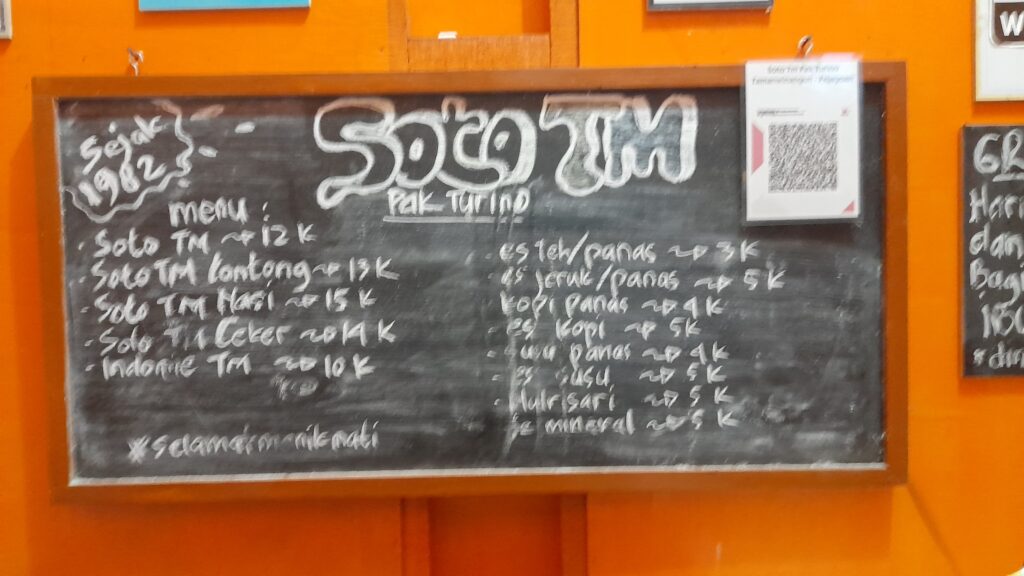 Sejak
1982
SOTO TM
Pak Turino
menu :
Soto TM ~> 12 K
Soto TM lontong ~> 13 K
Soto TM Nasi ~> 15 K
Soto TM Ceker ~> 14 K
Indomie TM ~> 10 K
*selamat menikmati
es teh/panas ~> 3 K
es jeruk/panas ~> 5 K
kopi panas ~> 4 K
es kopi ~> 5K
susu panas ~> 4 K
es susu ~> 5 K
Nutrisari ~> 5 K
mineral ~> 5 K
Soto TM Pak Turino
W
GR
Hari
dan
Bag